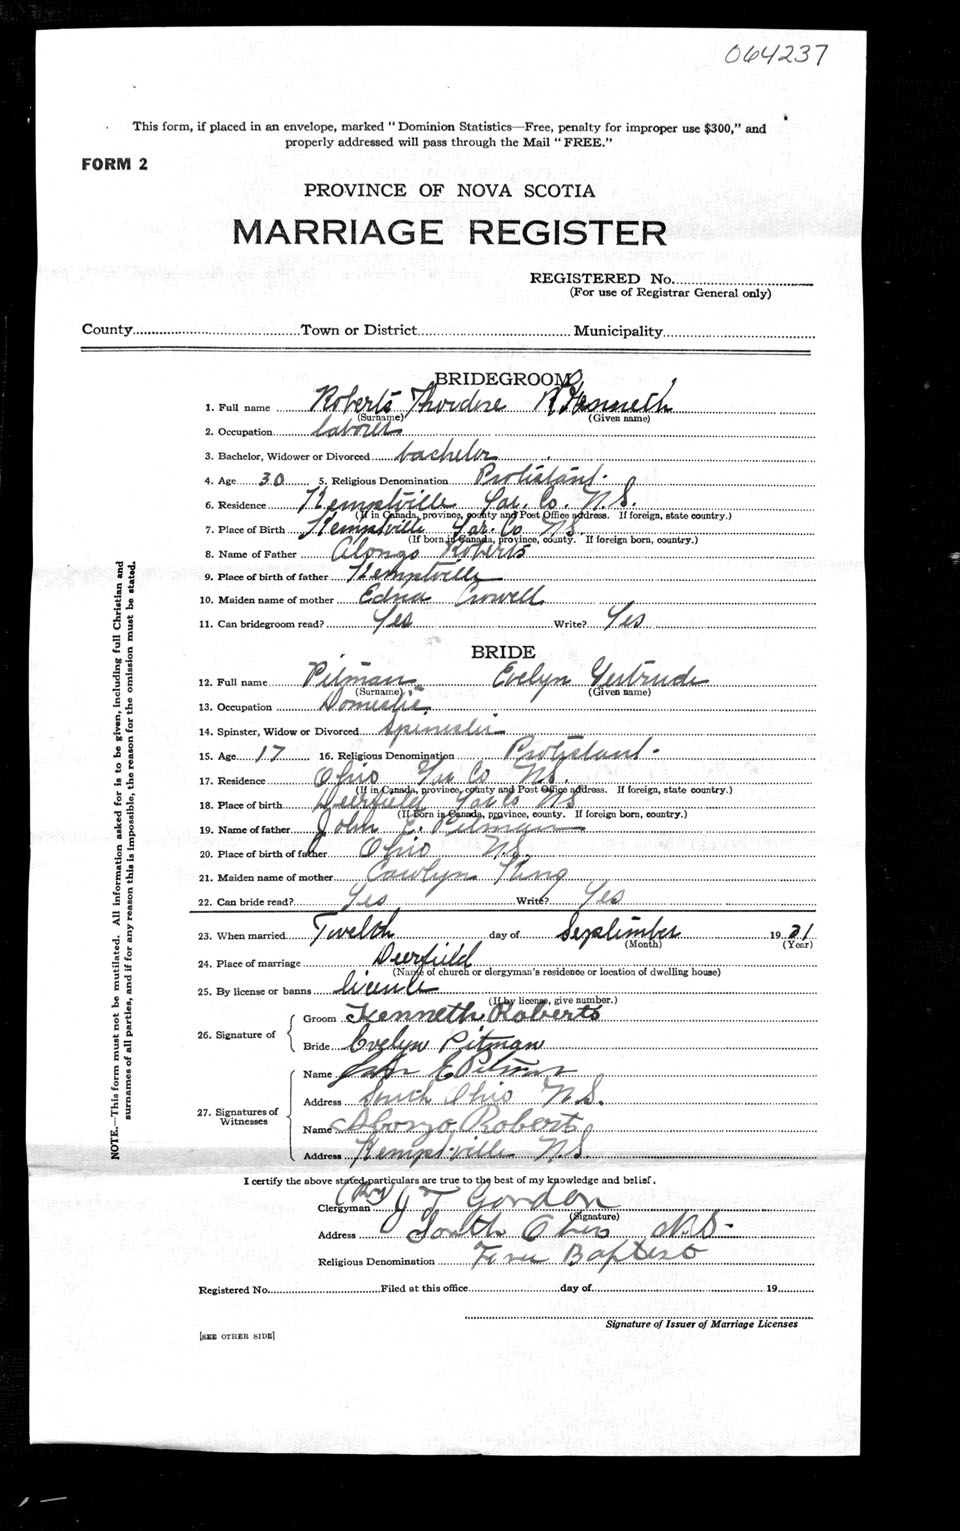 064237
This form, if placed in an envelope, marked "Dominion Statistics—Free, penalty for improper use $300," and
properly addressed will pass through the Mail "FREE."
FORM 2
PROVINCE OF NOVA SCOTIA
MARRIAGE REGISTER
REGISTERED No.
(For use of Registrar General only)
County Town or District Municipality
BRIDEGROOM
1. Full name Roberts Theodore Kenneth
(Surname) (Given name)
2. Occupation laborer
3. Bachelor, Widower or Divorced bachelor
4. Age 30 5. Religious Denomination Protistant
6. Residence Kemptville Yar. Co. N.S.
(If in Canada, province, county and Post Office address. If foreign, state country.)
7. Place of Birth Kemptville Yar. Co N.S.
(If born in Canada, province, county. If foreign born, country.)
8. Name of Father Alonzo Roberts
9. Place of birth of father Kemptville
10. Maiden name of mother Edna Crowell
11. Can bridegroom read? Yes Write? Yes
BRIDE
12. Full name Pitman Evelyn Gertrude
(Surname) (Given name)
13. Occupation Domestic
14. Spinster, Widow or Divorced Spinester
15. Age 17 16. Religious Denomination Protistant
17. Residence Ohio Yar Co N.S.
(If in Canada, province, county and Post Office address. If foreign, state country.)
18. Place of birth Deerfield Yar Co N.S
(If born in Canada, province, county. If foreign born, country.)
19. Name of father John E. Pitman
20. Place of birth of father Ohio N.S.
21. Maiden name of mother Carolyn King
22. Can bride read? Yes Write? Yes
23. When married Twelth day of September 1931
(Month) (Year)
24. Place of marriage Deerfield
(Name of church or clergyman's residence or location of dwelling house)
25. By license or banns licence
(If by license, give number.)
26. Signature of
Groom Kenneth Roberts
Bride Evelyn Pitman
27. Signatures of Witnesses
Name John E Pitman
Address South Ohio N.S.
Name Alonzo Roberts
Address Kemptville N.S.
I certify the above stated particulars are true to the best of my knowledge and belief.
Clergyman (Rev) J T Gordon
(Signature)
Address South Ohio N.S.
Religious Denomination Baptist
Registered No. Filed at this office day of 19
Signature of Issuer of Marriage Licenses
[SEE OTHER SIDE]
NOTE.—This form must not be mutilated. All information asked for is to be given, including full Christian and
surnames of all parties, and if for any reason this is impossible, the reason for the omission must be stated.